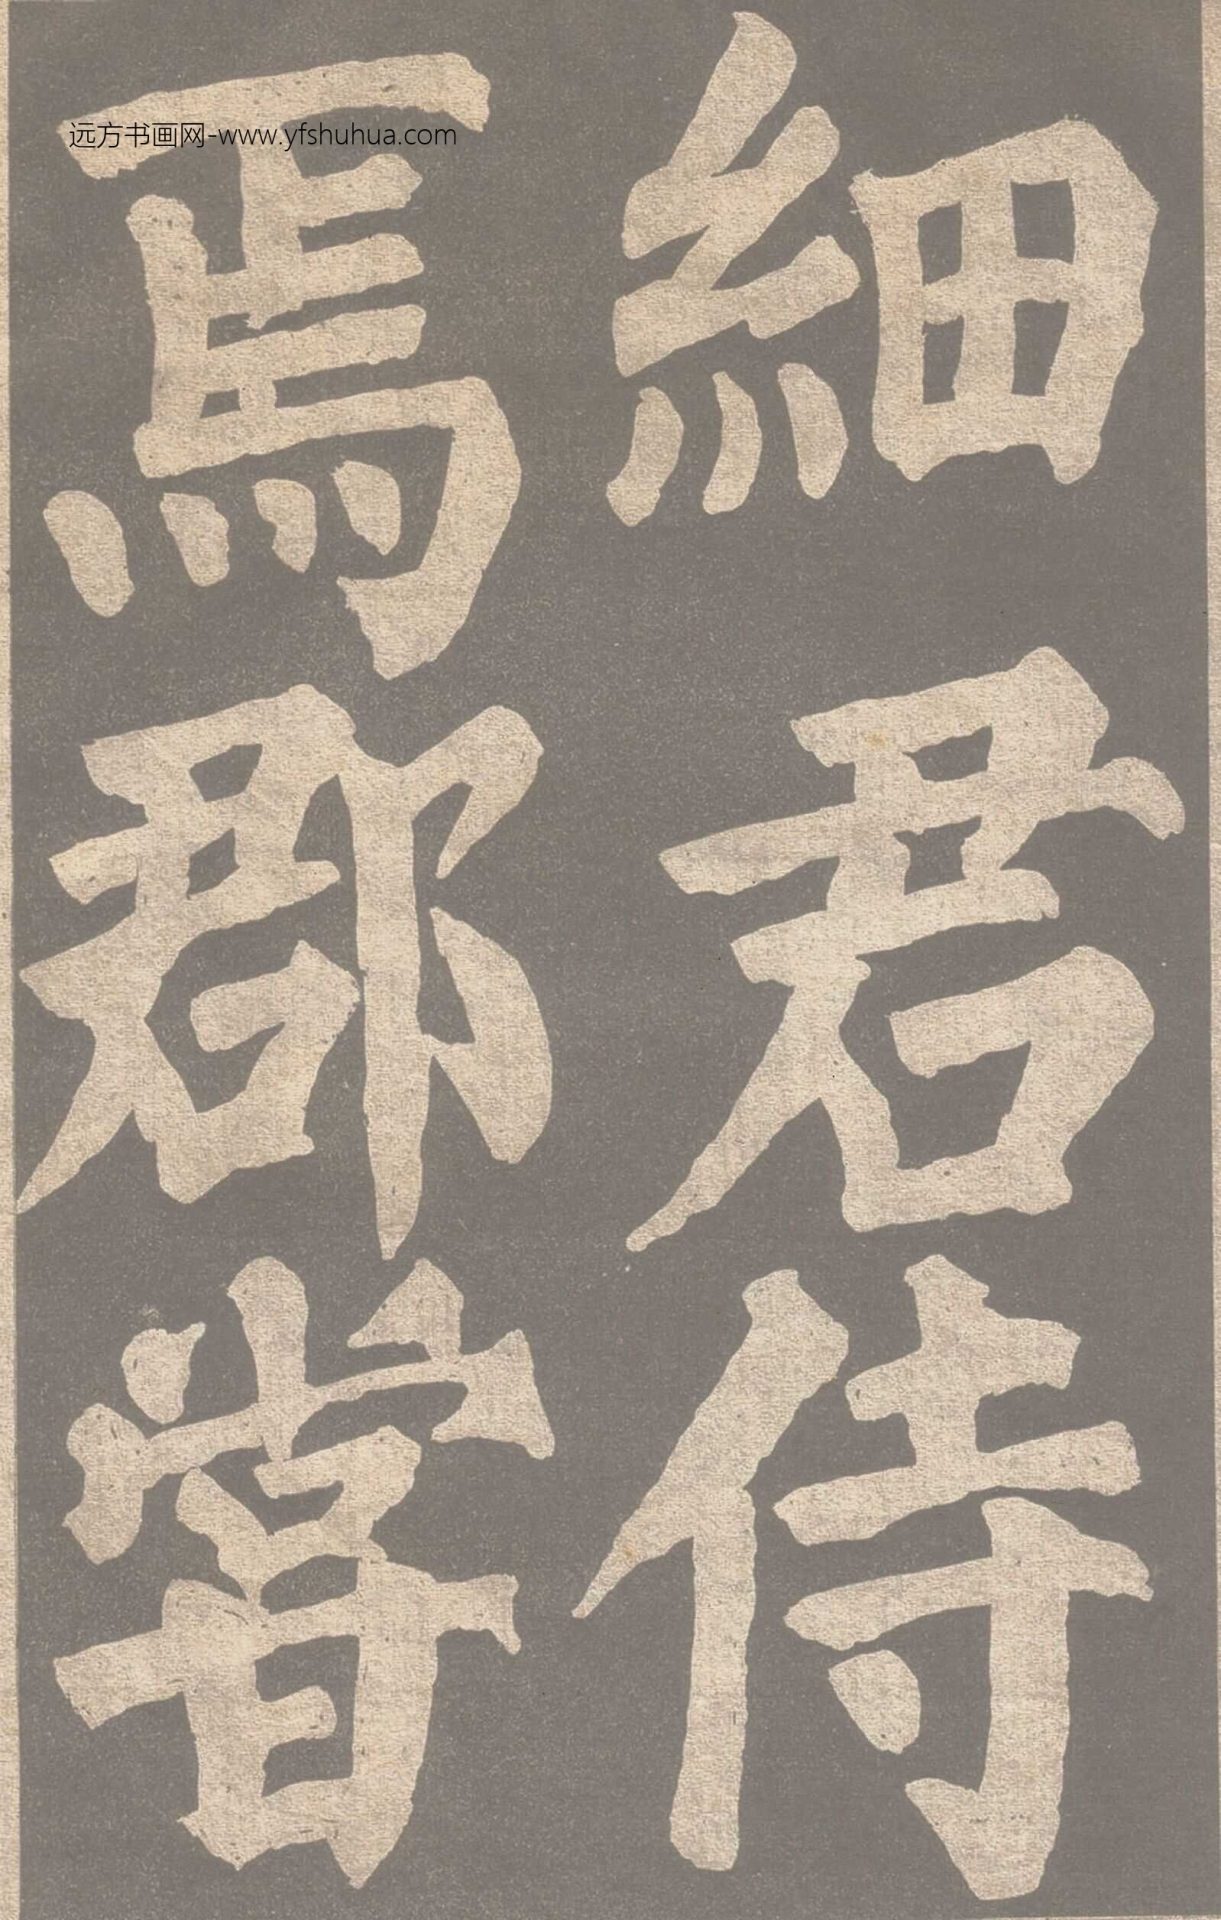 細君侍
焉郡嘗
远方书画网-www.yfshuhua.com